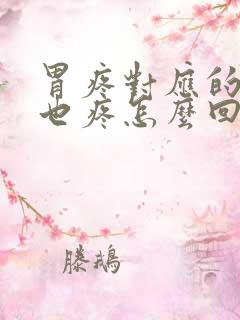 胃疼對應的
也疼怎麼回
滕鵝